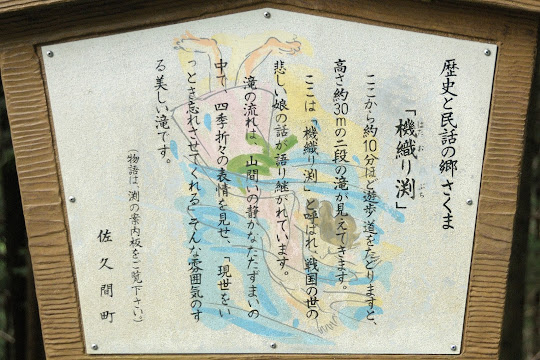 歴史と民話の郷さくま
「機織り渕」
はたおりぶち
ここから約10分ほど遊歩道をたどりますと、
高さ約30mの二段の滝が見えてきます。
ここは「機織り渕」と呼ばれ、戦国の世の
悲しい娘の話が語り継がれています。
滝の流れは、山間いの静かなたたずまいの
中で、四季折々の表情を見せ、「現世をい
っとき忘れさせてくれる」そんな雰囲気のす
る美しい滝です。
(物語は、渕の案内板をご覧下さい)
佐久間町